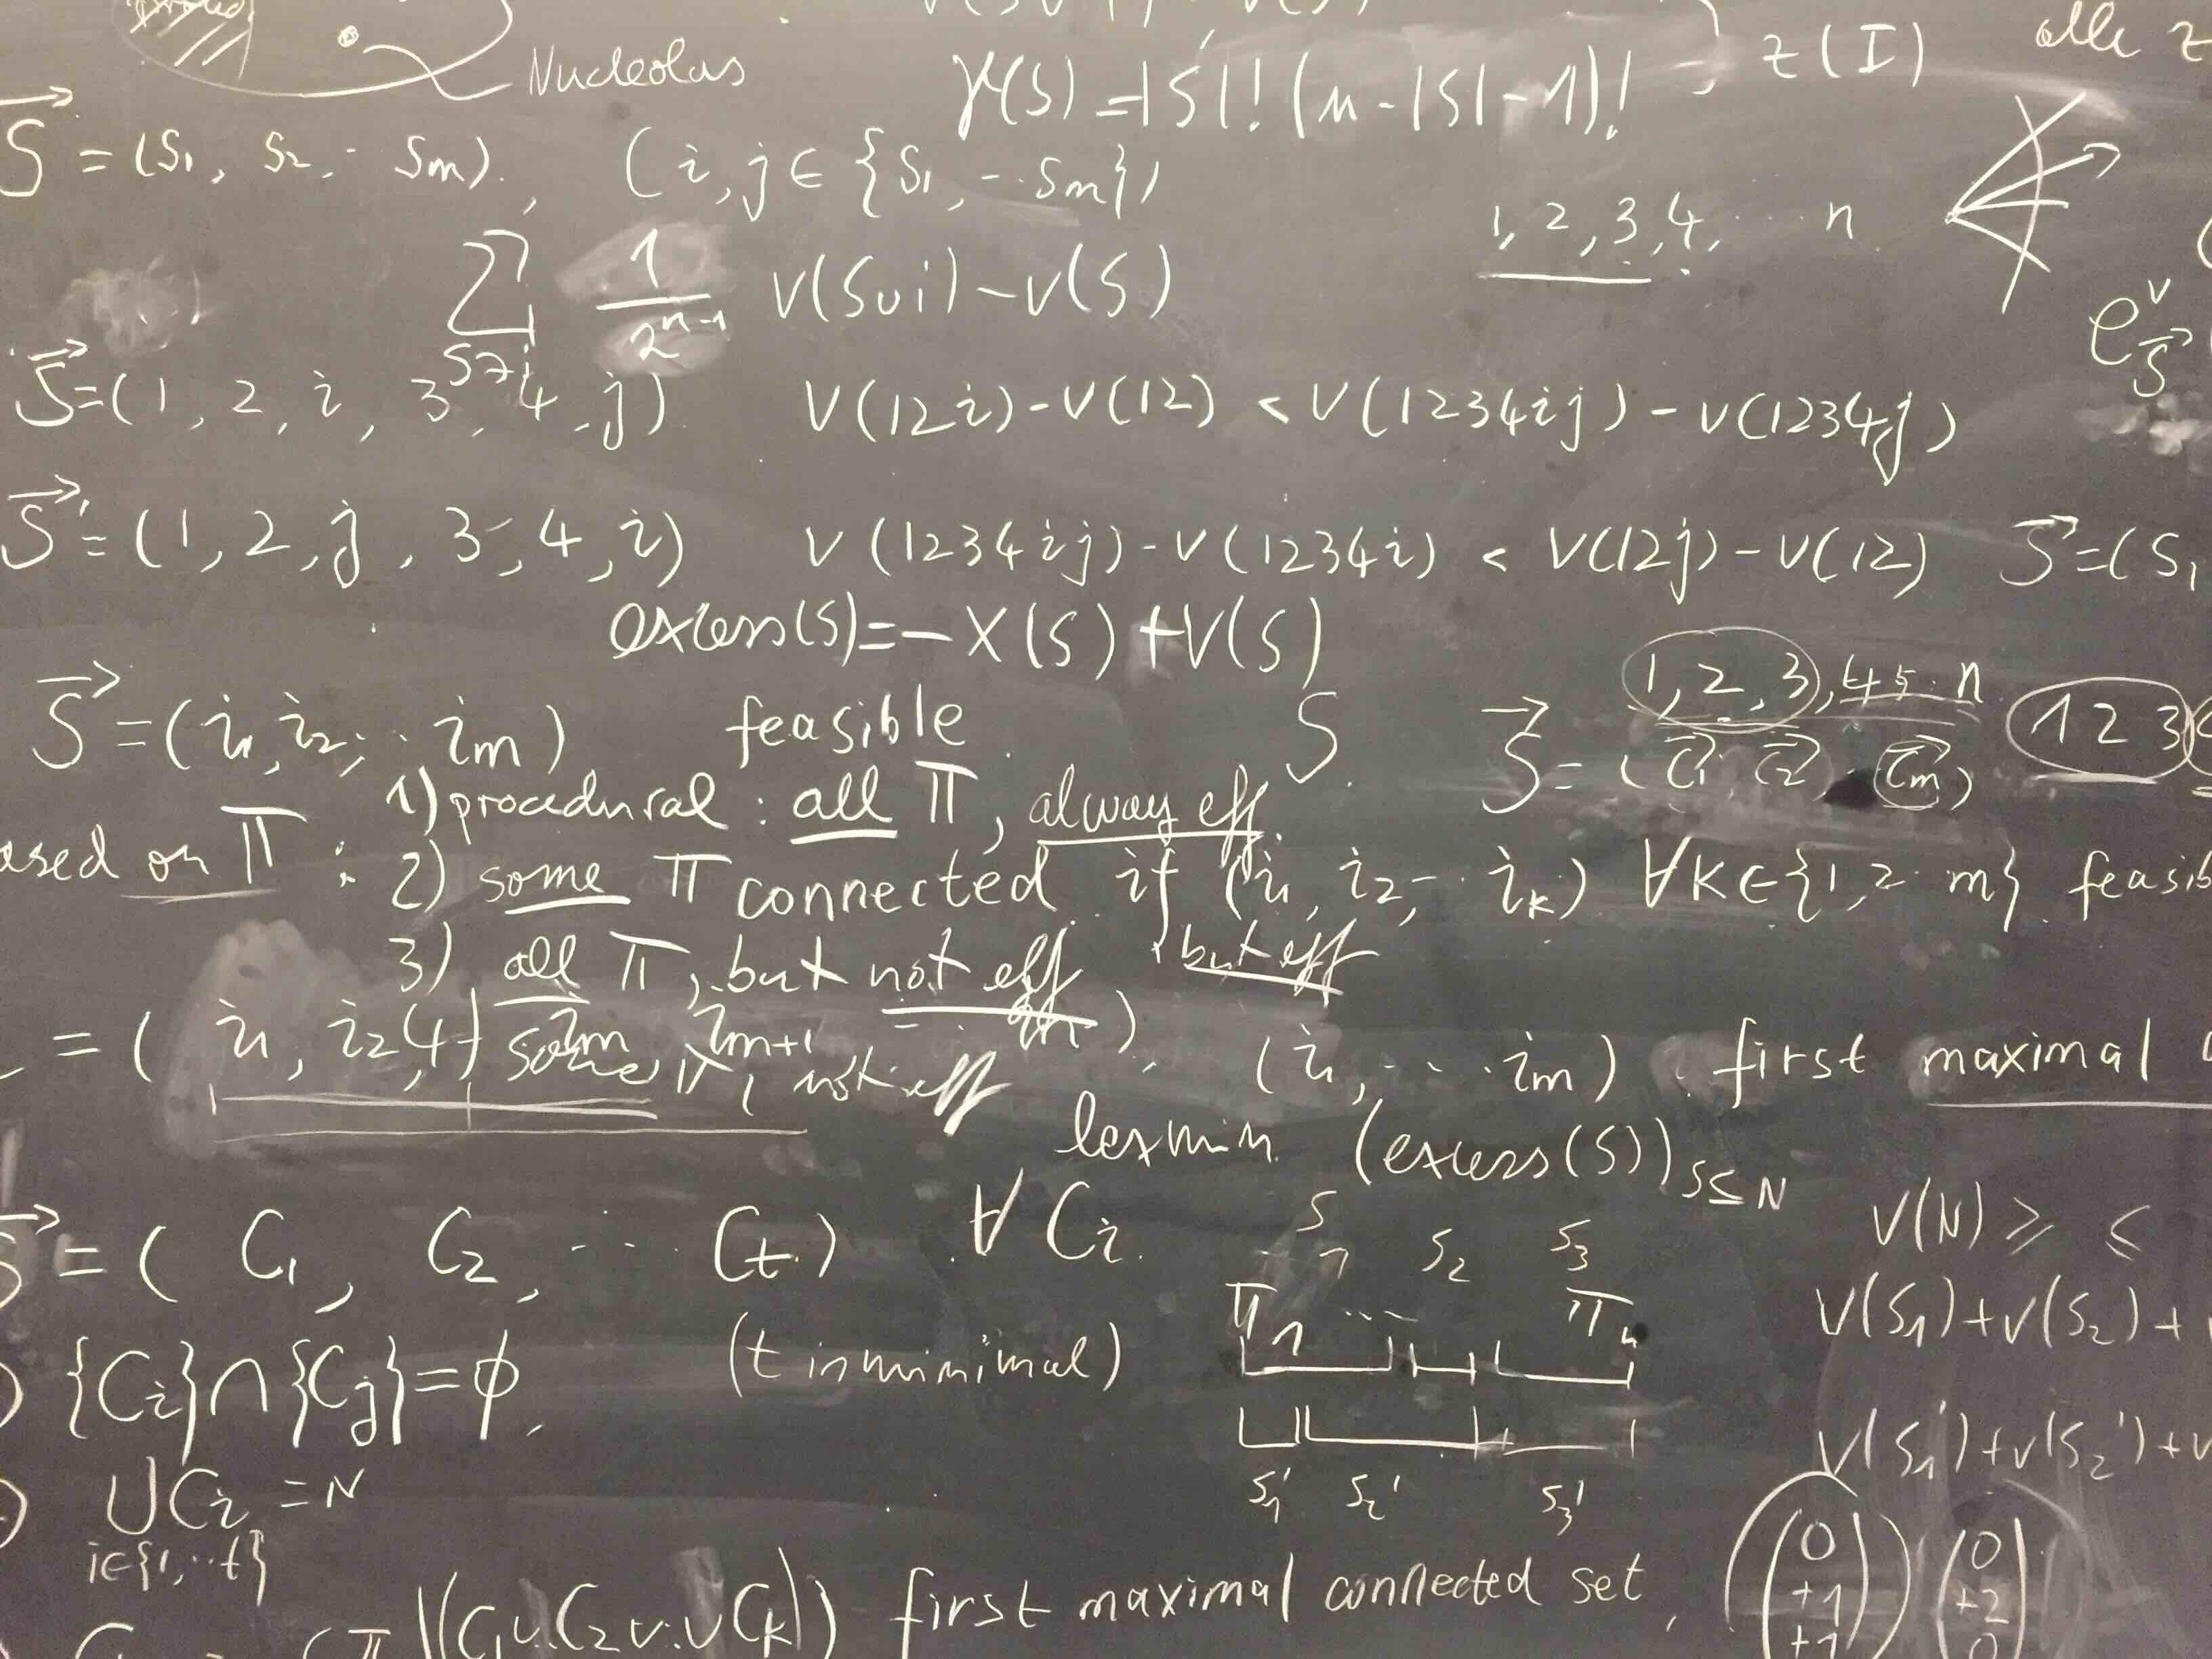 Nucleolus
γ(S) = |S|! (n - |S| - 1)!
z(I)
S⃗ = (S₁, S₂, ·· Sm), (i, j ∈ {S₁, ··· Sm})
1, 2, 3, 4, ··· n
∑ 1/2ⁿ⁻¹ v(S∪i) - v(S)
S∌i
e^v_S⃗
S⃗ = (1, 2, i, 3, 4, j) V(12i) - V(12) < V(1234ij) - V(1234j)
S⃗' = (1, 2, j, 3, 4, i) V(1234ij) - V(1234i) < V(12j) - V(12) S⃗ = (S₁
excess(S) = -X(S) + V(S)
1, 2, 3, 4 5 · n
S⃗ = (i₁, i₂, ·· im) feasible S S⃗ = (C⃗₁ C⃗₂ C⃗m) 1 2 3
1) procedural : all π, alway eff
ased on π : 2) some π connected if (i₁, i₂, ·· ik) ∀k∈{1, 2 ·· m} feasib
but eff
3) all π, but not eff
4) some π, not eff
= ( i₁, i₂, im im+1 ··· in ), (i₁, ··· im) first maximal
lexmin (excess(S))S⊆N
S⃗ = ( C₁, C₂, ··· Ct ) ∀ Ci
S₁ S₂ S₃
V(N) ≥ ≤
π₁ ··· πn
V(S₁) + V(S₂) +
{Ci} ∩ {Cj} = ϕ, (t is minimal)
V(S₁') + V(S₂') + V
S₁' S₂' S₃'
∪Ci = N
i∈{1, ·· t}
(π \ (C₁∪C₂∪··∪Ck)) first maximal connected set,
(0 +1 +1) (0 +2 0